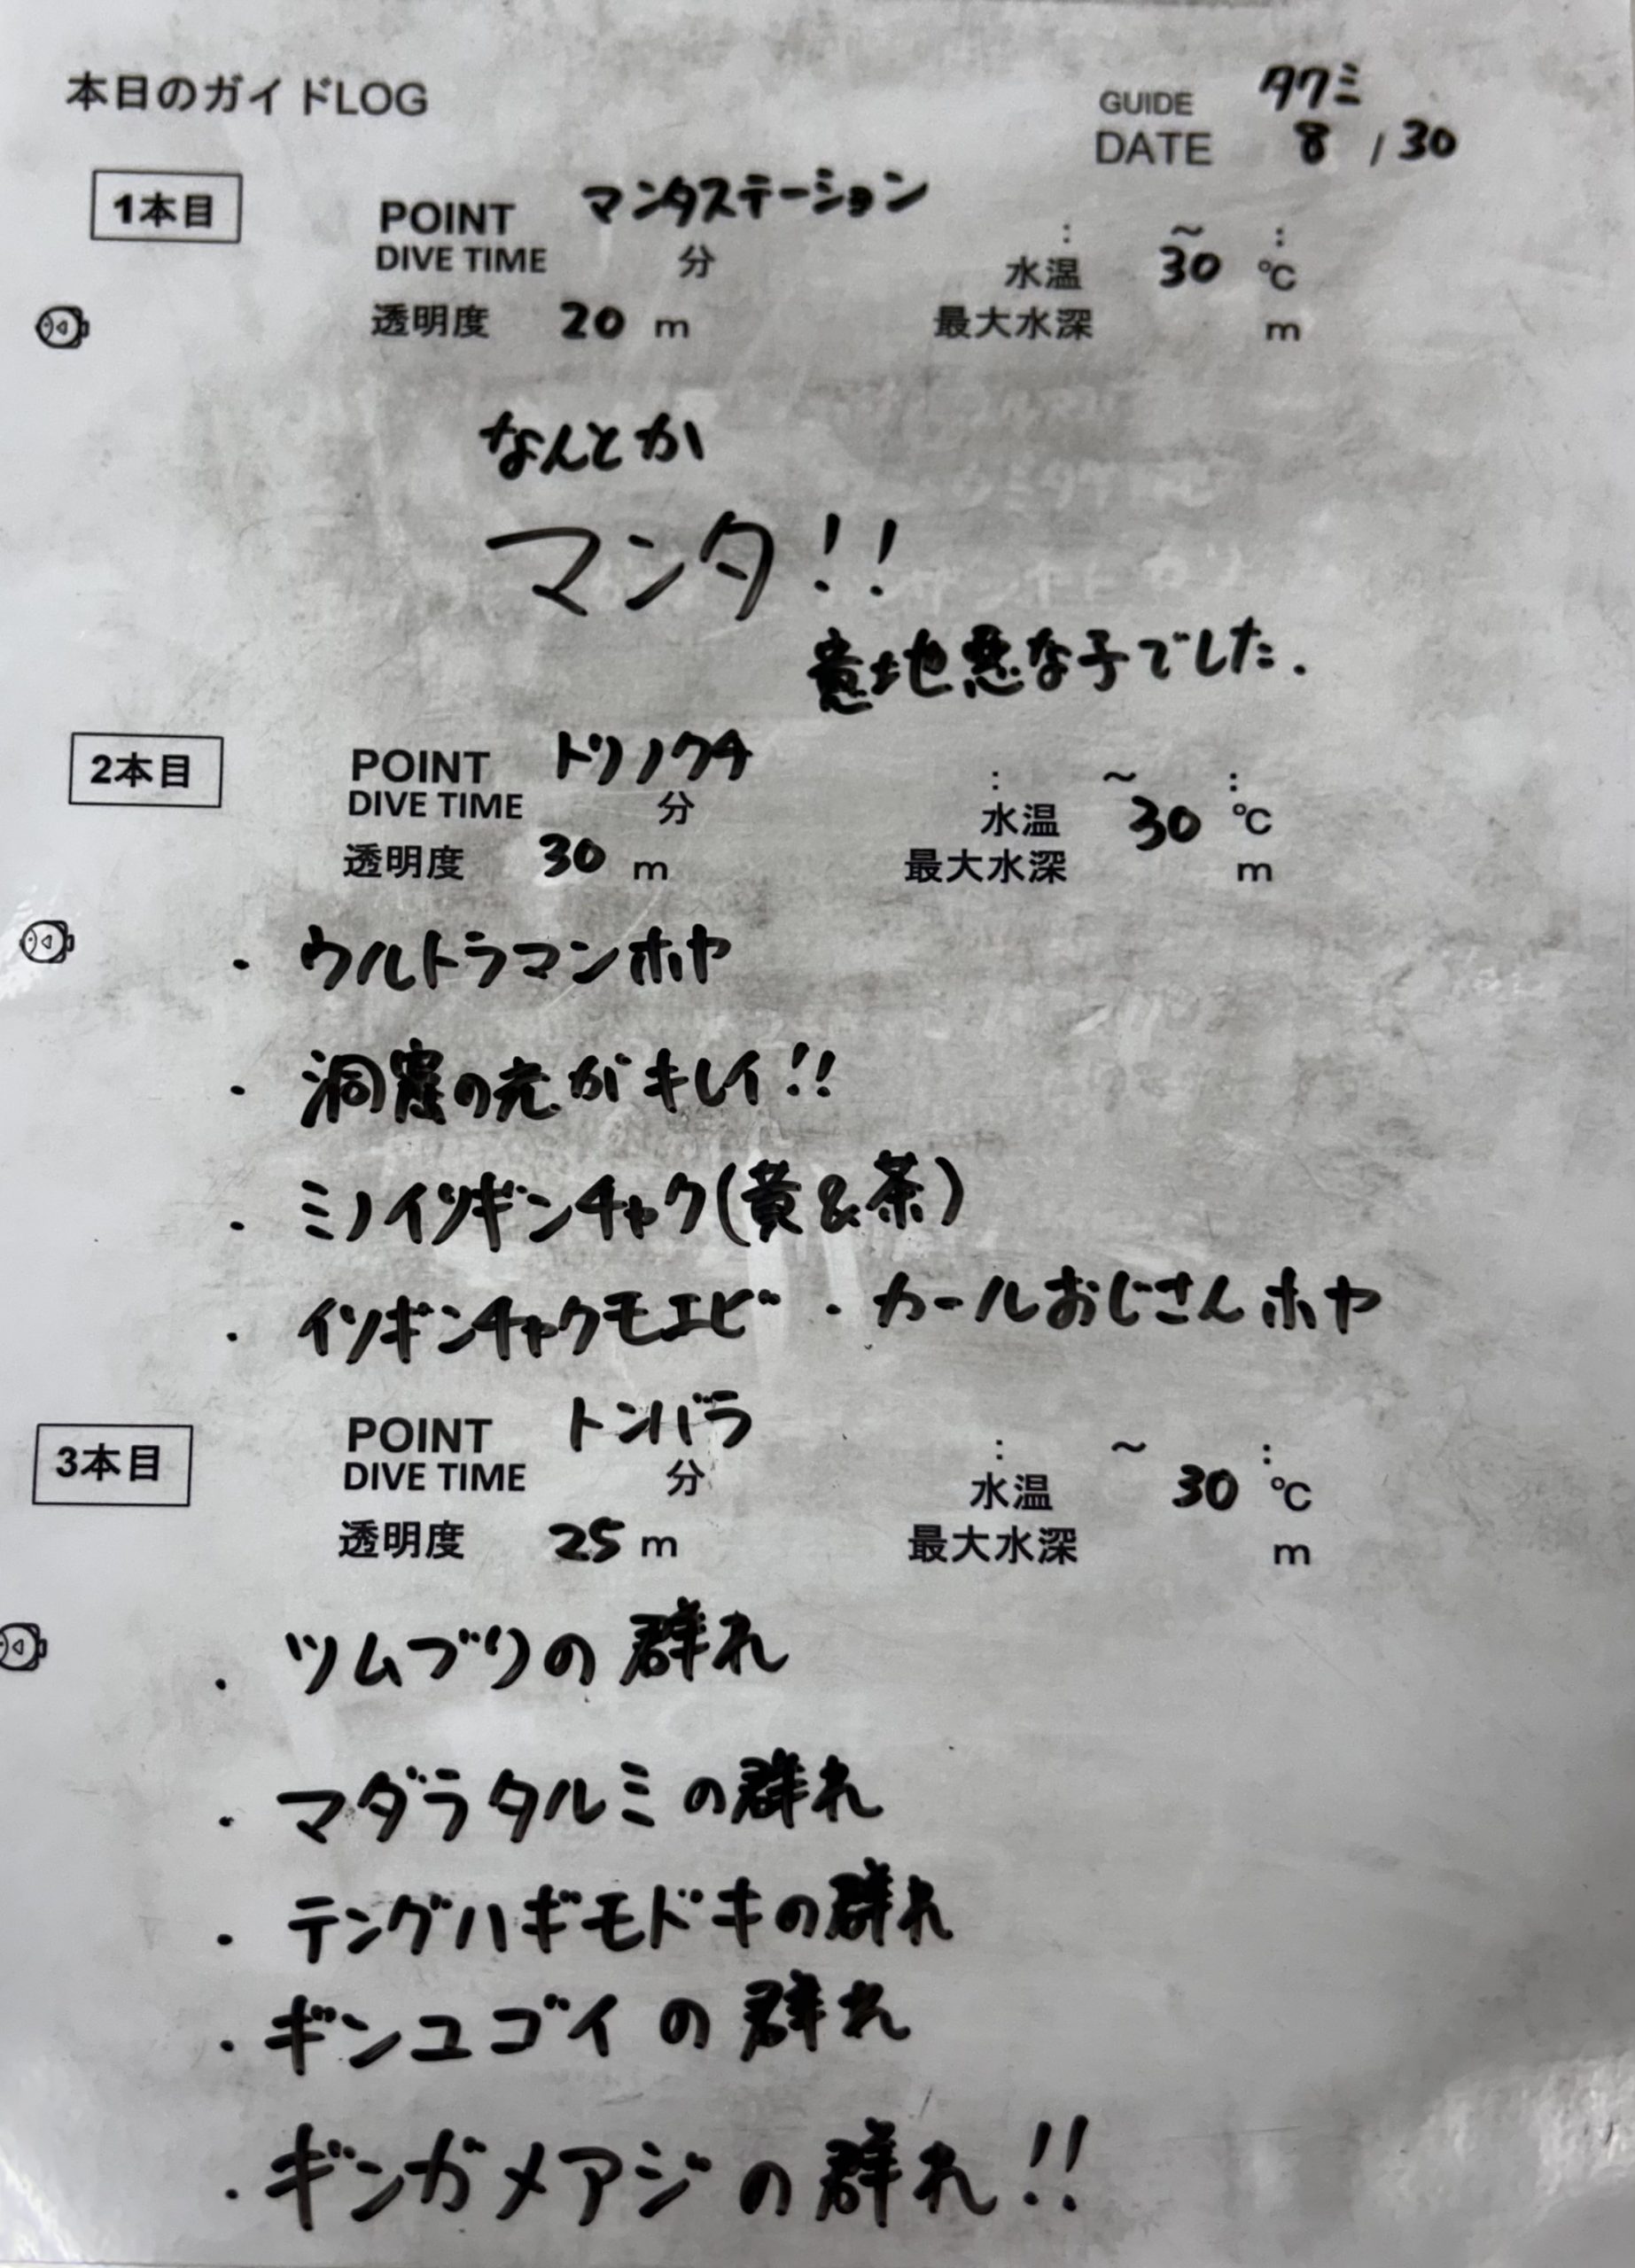 本日のガイドLOG
GUIDE タクミ
DATE 8 / 30
1本目
POINT マンタステーション
DIVE TIME 分 : ～ :
水温 30 ℃
透明度 20 m 最大水深 m
なんとか
マンタ!!
意地悪な子でした.
2本目
POINT トリノクチ
DIVE TIME 分 : ～ :
水温 30 ℃
透明度 30 m 最大水深 m
・ウルトラマンホヤ
・洞窟の光がキレイ!!
・ミノイソギンチャク(黄&茶)
・イソギンチャクモエビ ・カールおじさんホヤ
3本目
POINT トンバラ
DIVE TIME 分 : ～ :
水温 30 ℃
透明度 25 m 最大水深 m
・ツムブリの群れ
・マダラタルミの群れ
・テングハギモドキの群れ
・ギンユゴイの群れ
・ギンガメアジの群れ!!